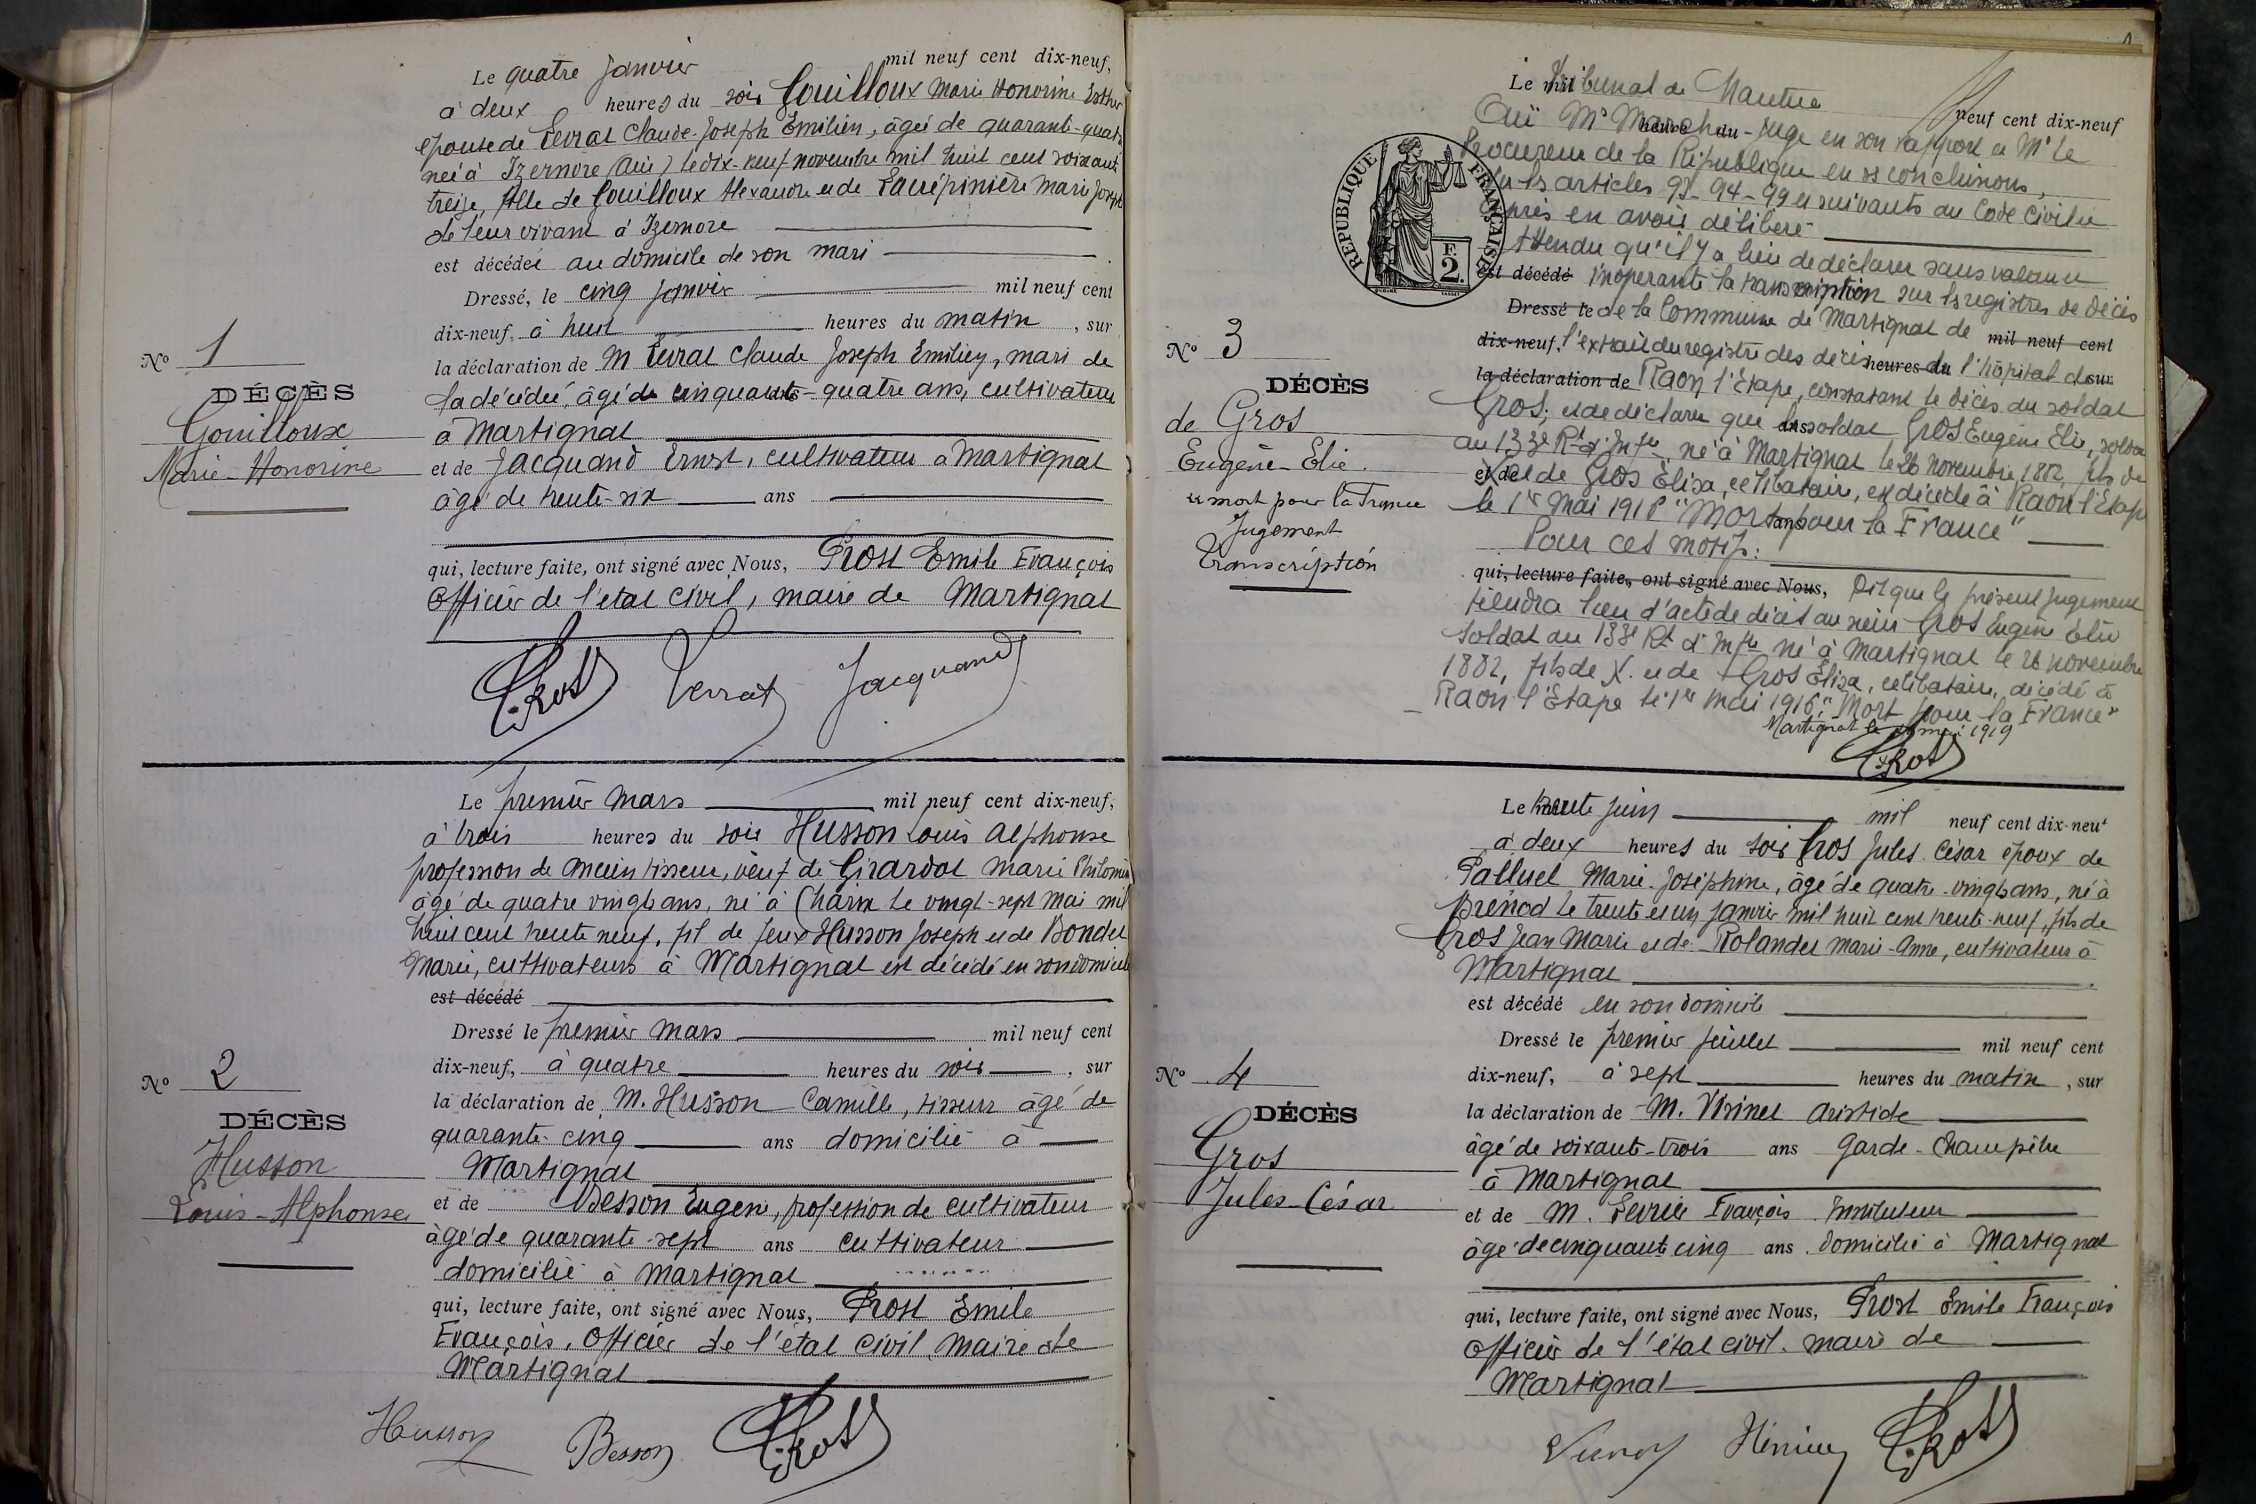 Le quatre janvier mil neuf cent dix-neuf,
à deux heures du soir Gouilloux Marie Honorine Esther
épouse de Levrat Claude-Joseph Emilien, âgée de quarante-quatre
née à Izernore (Ain) le dix-neuf novembre mil huit cent soixante
treize, fille de Gouilloux Alexandre et de Lacrépinière Marie Joseph
de leur vivant à Izernore
est décédée au domicile de son mari
Dressé, le cinq janvier mil neuf cent
dix-neuf, à huit heures du matin, sur
la déclaration de M Levrat Claude Joseph Emilien, mari de
la décédée, âgé de cinquante-quatre ans, cultivateur
à Martignat
et de Jacquand Ernest, cultivateur à Martignat
âgé de trente-six ans
qui, lecture faite, ont signé avec Nous, Prost Emile François
Officier de l'état civil, maire de Martignat
No 1
DÉCÈS
Gouilloux
Marie-Honorine
E. Prost Levrat Jacquand
Le premier mars mil neuf cent dix-neuf,
à trois heures du soir Husson Louis Alphonse
profession de ancien tisseur, veuf de Girardot Marie Philomène
âgé de quatre vingts ans, né à Charix le vingt-sept mai mil
huit cent trente neuf, fil de feux Husson Joseph et de Bondet
Marie, cultivateurs à Martignat est décédé en son domicile
est décédé
Dressé le premier mars mil neuf cent
dix-neuf, à quatre heures du soir, sur
la déclaration de M. Husson Camille, tisseur âgé de
quarante-cinq ans domicilié à
Martignat
et de Besson Eugène, profession de cultivateur
âgé de quarante-sept ans cultivateur
domicilié à Martignat
qui, lecture faite, ont signé avec Nous, Prost Emile
François, Officier de l'état civil, Maire de
Martignat
No 2
DÉCÈS
Husson
Louis-Alphonse
Husson Besson E. Prost
Le mil Tribunal de Nantua neuf cent dix-neuf
Ouï Mr Marchu heure du - juge en son rapport et Mr le
Procureur de la République en ses conclusions,
Vu les articles 93-94-99 et suivants du Code Civil
Après en avoir délibéré
Attendu qu'il y a lieu de déclarer sans valeur
est décédé inopérante la transcription sur les registres de décès
Dressé le de la Commune de Martignat de mil neuf cent
dix-neuf, l'extrait du registre des décès heures du l'hôpital de sur
la déclaration de Raon l'Etape, constatant le décès du soldat
Gros, et de déclarer que le ans soldat Gros Eugène Elie, soldat
au 133e Rt d'Infie, né à Martignat le 26 novembre 1882, fils de
et de X et de Gros Elisa, célibataire, est décédé à Raon l'Etape
le 1er Mai 1916 "Mort ans pour la France"
Pour ces motifs:
qui, lecture faite, ont signé avec Nous, Dit que le présent jugement
tiendra lieu d'acte de décès au sieur Gros Eugène Elie
Soldat au 133e Rt d'Infie né à Martignat le 26 novembre
1882, fils de X. et de Gros Elisa, célibataire, décédé à
Raon l'Etape le 1er Mai 1916, "Mort pour la France"
Martignat le mai 1919
E. Prost
REPUBLIQUE FRANÇAISE
F.
2.
No 3
DÉCÈS
de Gros
Eugène-Elie.
"mort pour la France
Jugement
Transcription
Le trente juin mil neuf cent dix-neuf
à deux heures du soir Gros Jules César époux de
Palluel Marie-Joséphine, âgé de quatre-vingts ans, né à
Brénod le trente et un janvier mil huit cent trente-neuf, fils de
Gros Jean Marie et de Rolandet Marie-Anne, cultivateur à
Martignat
est décédé en son domicile
Dressé le premier juillet mil neuf cent
dix-neuf, à sept heures du matin, sur
la déclaration de M. Aristide
âgé de soixante-trois ans Garde-Champêtre
à Martignat
et de M. François Instituteur
âgé de cinquante cinq ans domicilié à Martignat
qui, lecture faite, ont signé avec Nous, Prost Emile François
Officier de l'état civil. maire de
Martignat
No 4
DÉCÈS
Gros
Jules-César
E. Prost